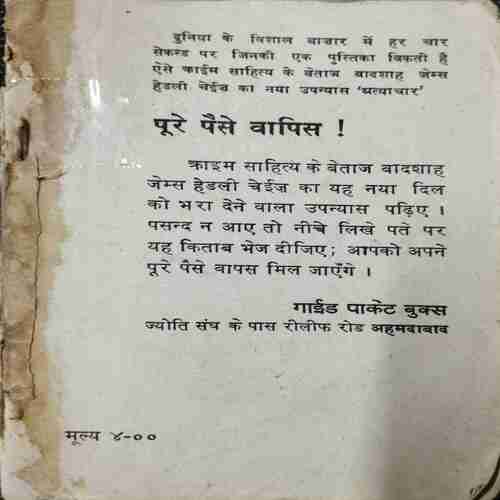 दुनिया के विशाल बाजार में हर चार
सेकन्ड पर जिनकी एक पुस्तिका बिकती है
ऐसे क्राईम साहित्य के बेताज बादशाह जेम्स
हेडली चेईज का नया उपन्यास 'अत्याचार'
पूरे पैसे वापिस !
क्राइम साहित्य के बेताज बादशाह
जेम्स हेडली चेईज का यह नया दिल
को भरा देने वाला उपन्यास पढ़िए ।
पसन्द न आए तो नीचे लिखे पते पर
यह किताब भेज दीजिए; आपको अपने
पूरे पैसे वापस मिल जाएँगे ।
गाईड पाकेट बुक्स
ज्योति संघ के पास रीलीफ रोड अहमदाबाद
मूल्य ४-००